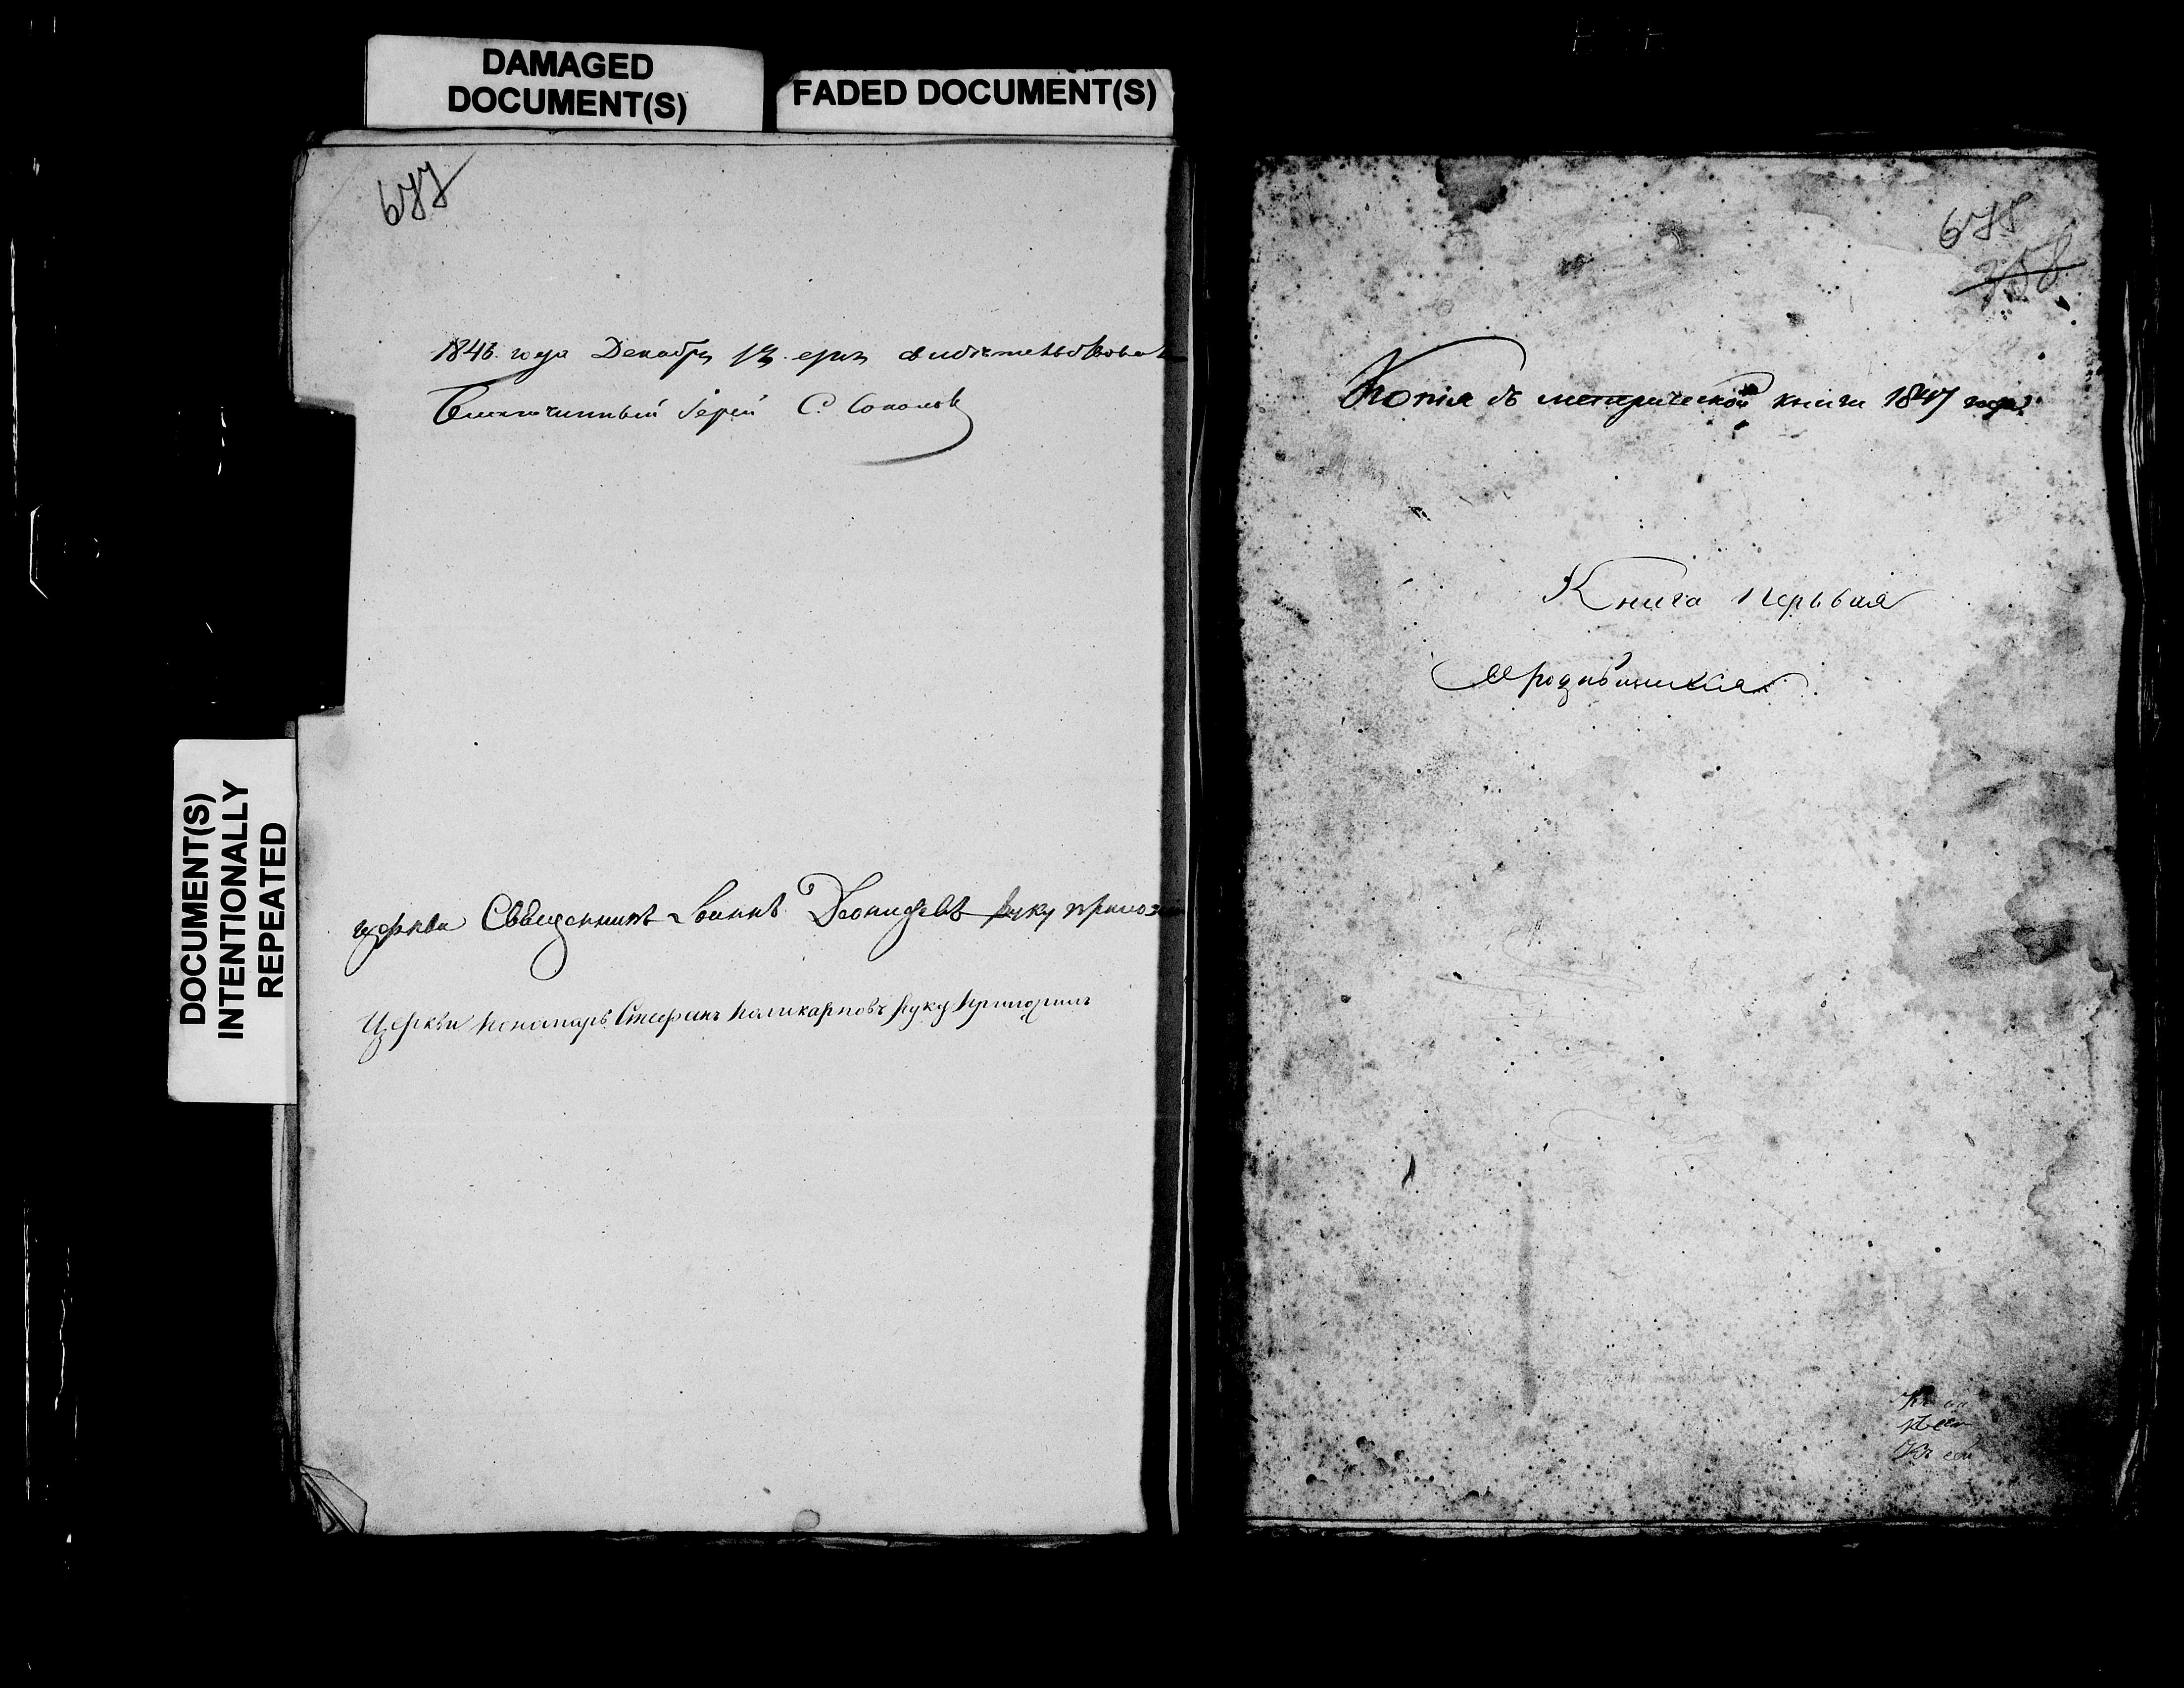 DAMAGED
DOCUMENT(S)
FADED DOCUMENT(S)
DOCUMENT(S)
INTENTIONALLY
REPEATED
677
1846. года Декабря дня свидетельствовалъ
Благочинный Іерей С. Соколовъ
церкви Священникъ Іоаннъ руку прилож
Церкви пономарь Стефанъ Поликарповъ руку приложилъ
678
358
Копія съ метрической книги 1847 года.
Книга первая